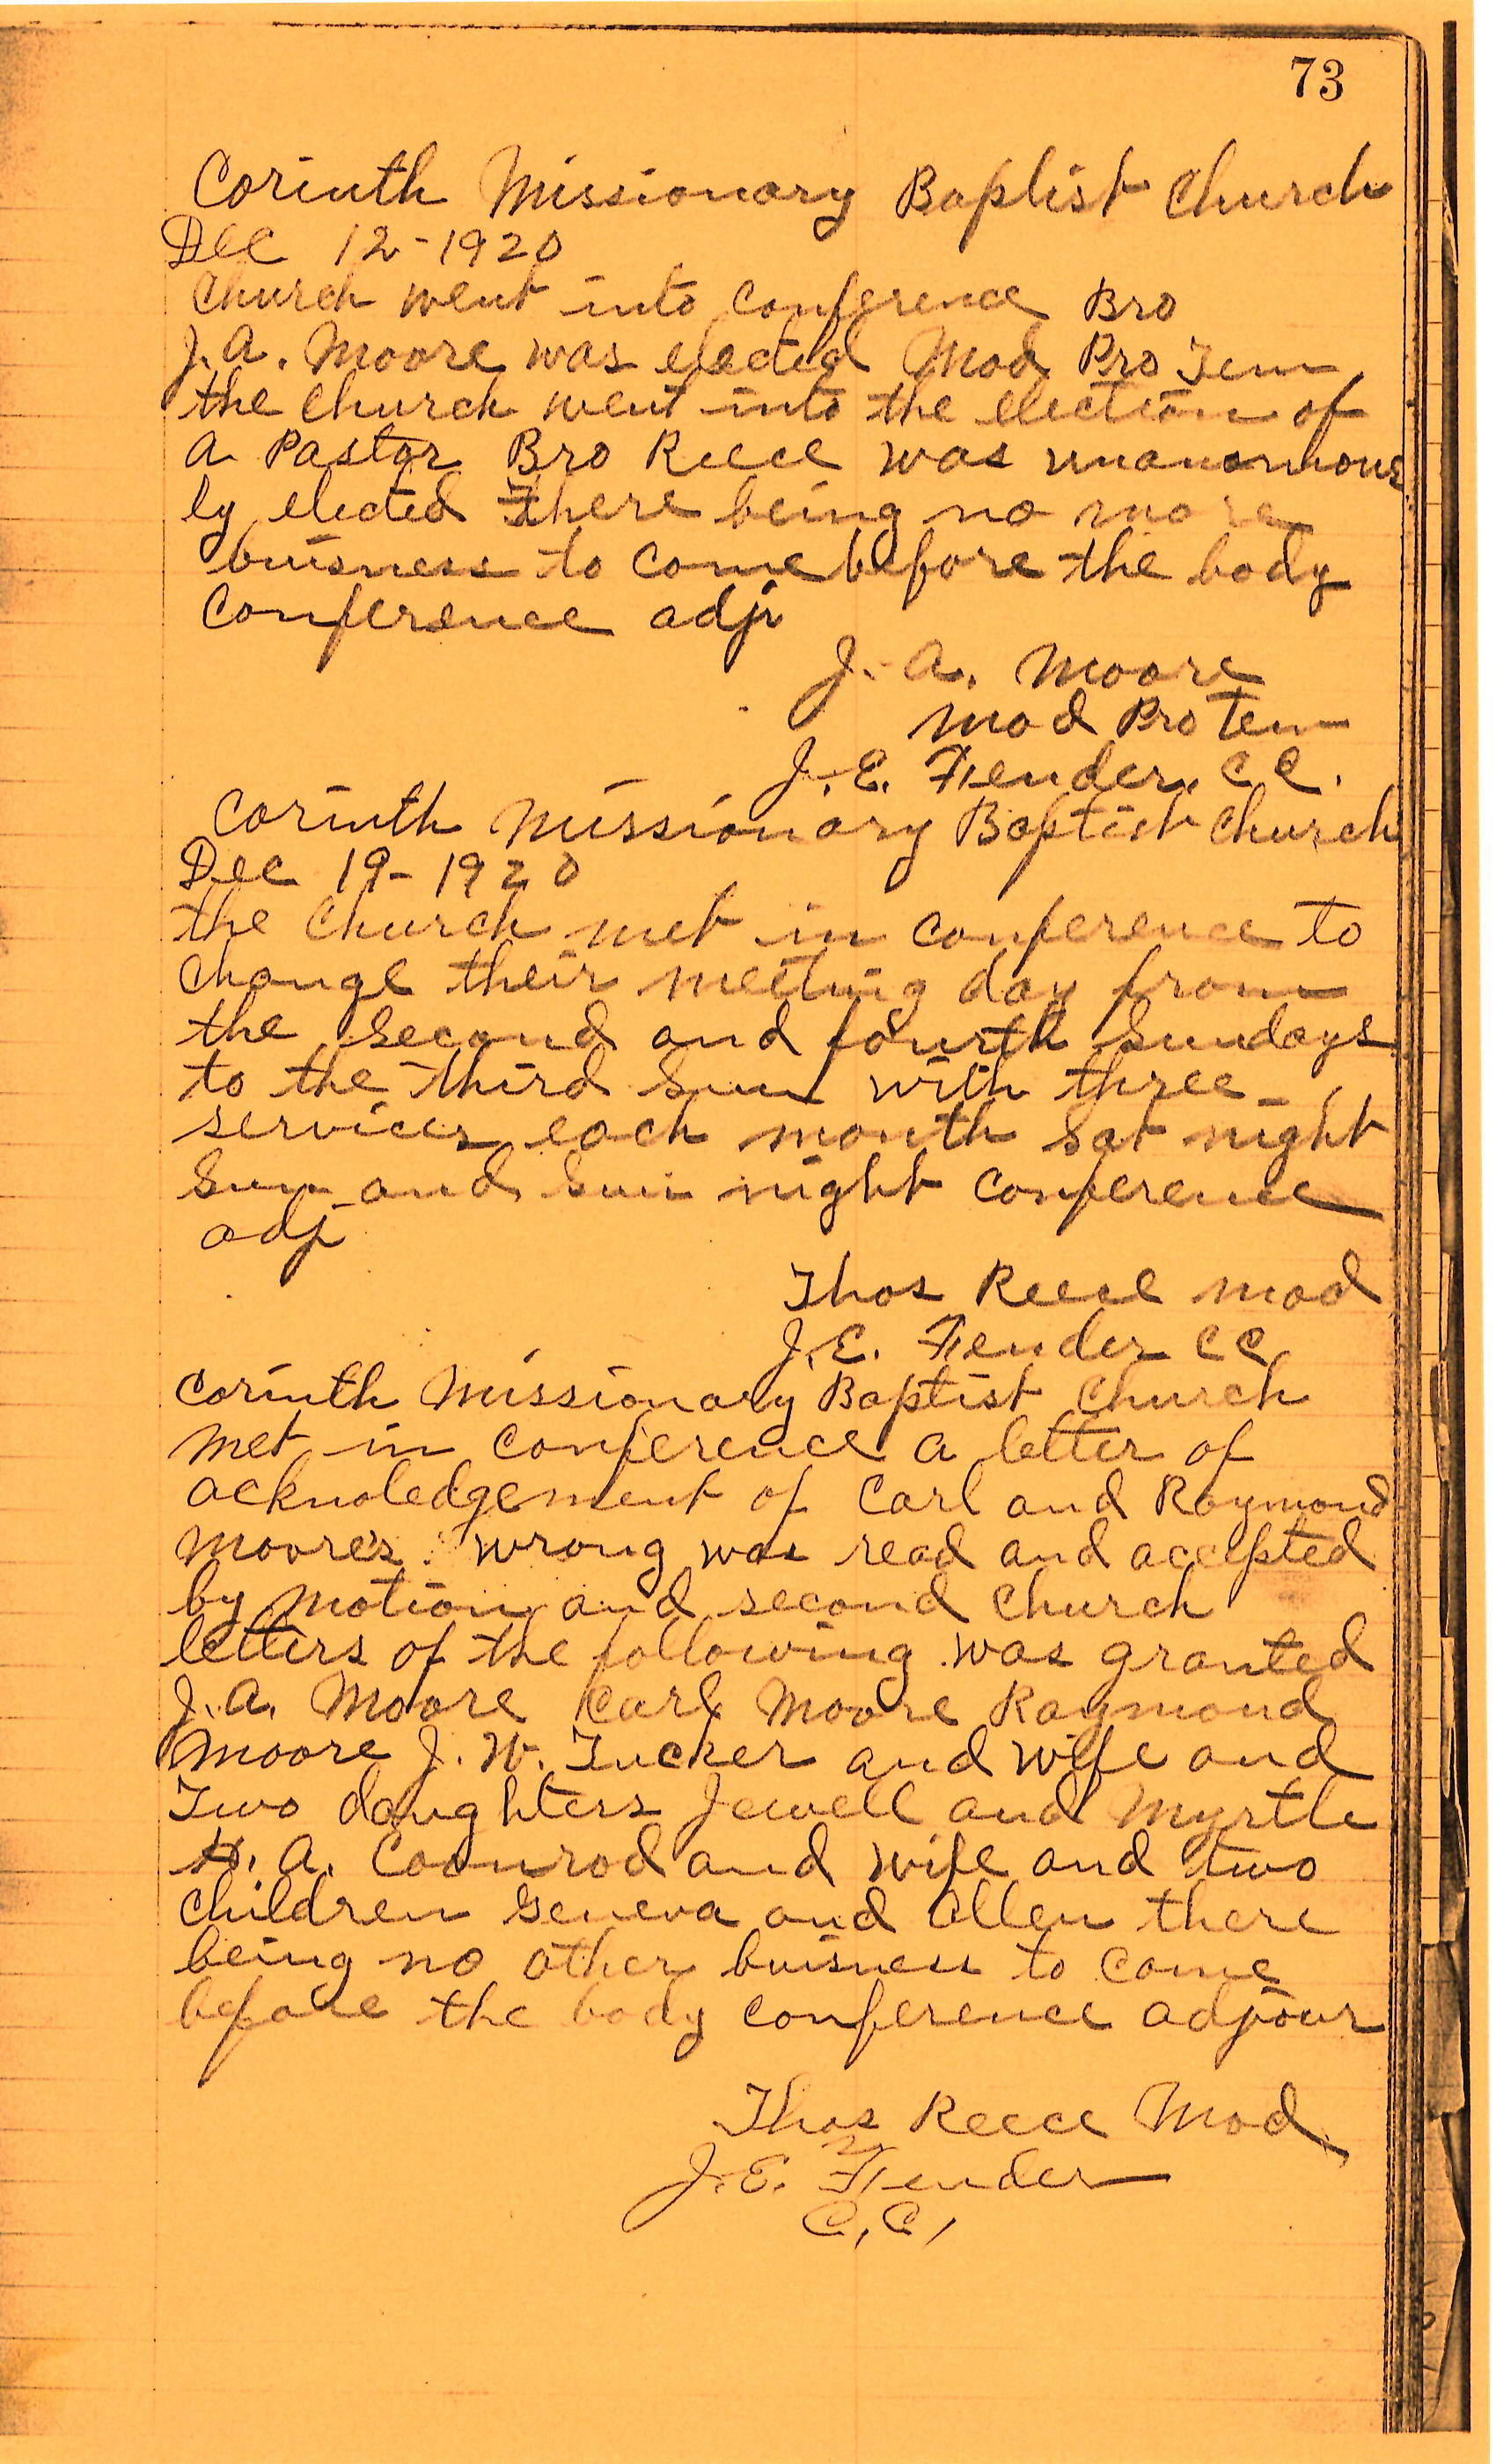 73
Corinth Missionary Baptist Church
Dec 12-1920
Church went into conference Bro
J. A. Moore was elected Mod Pro Tem
the church went into the election of
a Pastor Bro Reece was unanormous
ly elected There being no more
buisness to come before the body
Conference adjr
J. A. Moore
Mod Pro Tem
J. E. Fender, C C.
Corinth Missionary Baptist Church
Dec 19-1920
the Church met in conference to
change their meeting day from
the second and fourth Sundays
to the third Sun with three
services each month Sat night
Sun and Sun night conference
adj
Thos Reece Mod
J. E. Fender C C
Corinth Missionary Baptist Church
met in conference a letter of
acknoledgement of Carl and Raymond
Moore's wrong was read and accepted
by motion and second Church
letters of the following was granted
J. A. Moore Carl Moore Raymond
Moore J. W. Tucker and wife and
Two daughters Jewell and Myrtle
H. A. Coonrod and wife and two
children Geneva and Allen there
being no other buisness to come
before the body conference adjour
Thos Reece Mod
J. E. Fender
C. C.